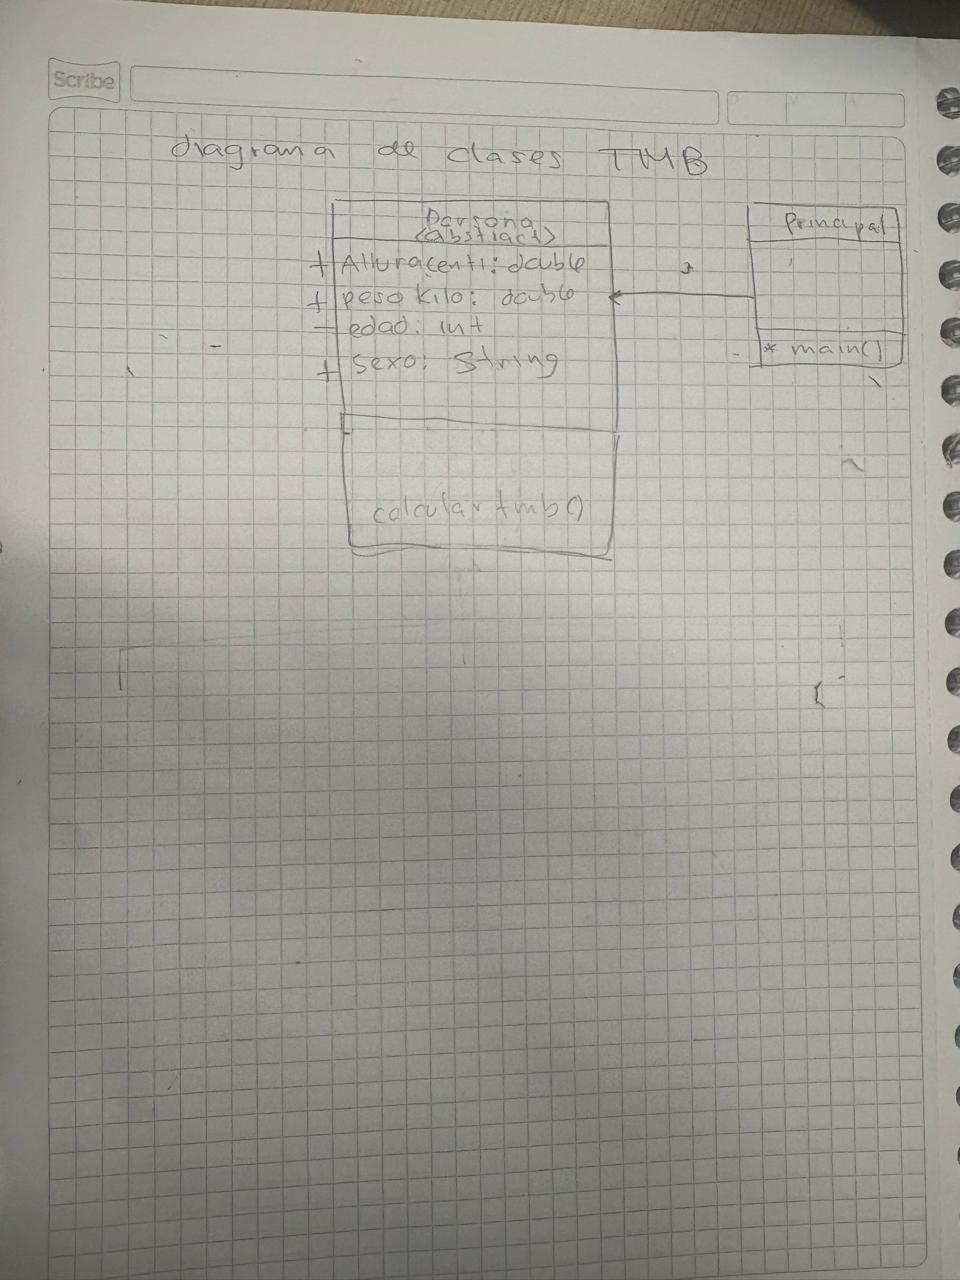 Scribe
diagrama de clases TMB
Persona
<abstract>
+ Alturacenti: double
+ peso kilo: double
- edad: int
+ sexo: String
calculartmb()
Principal
* main()